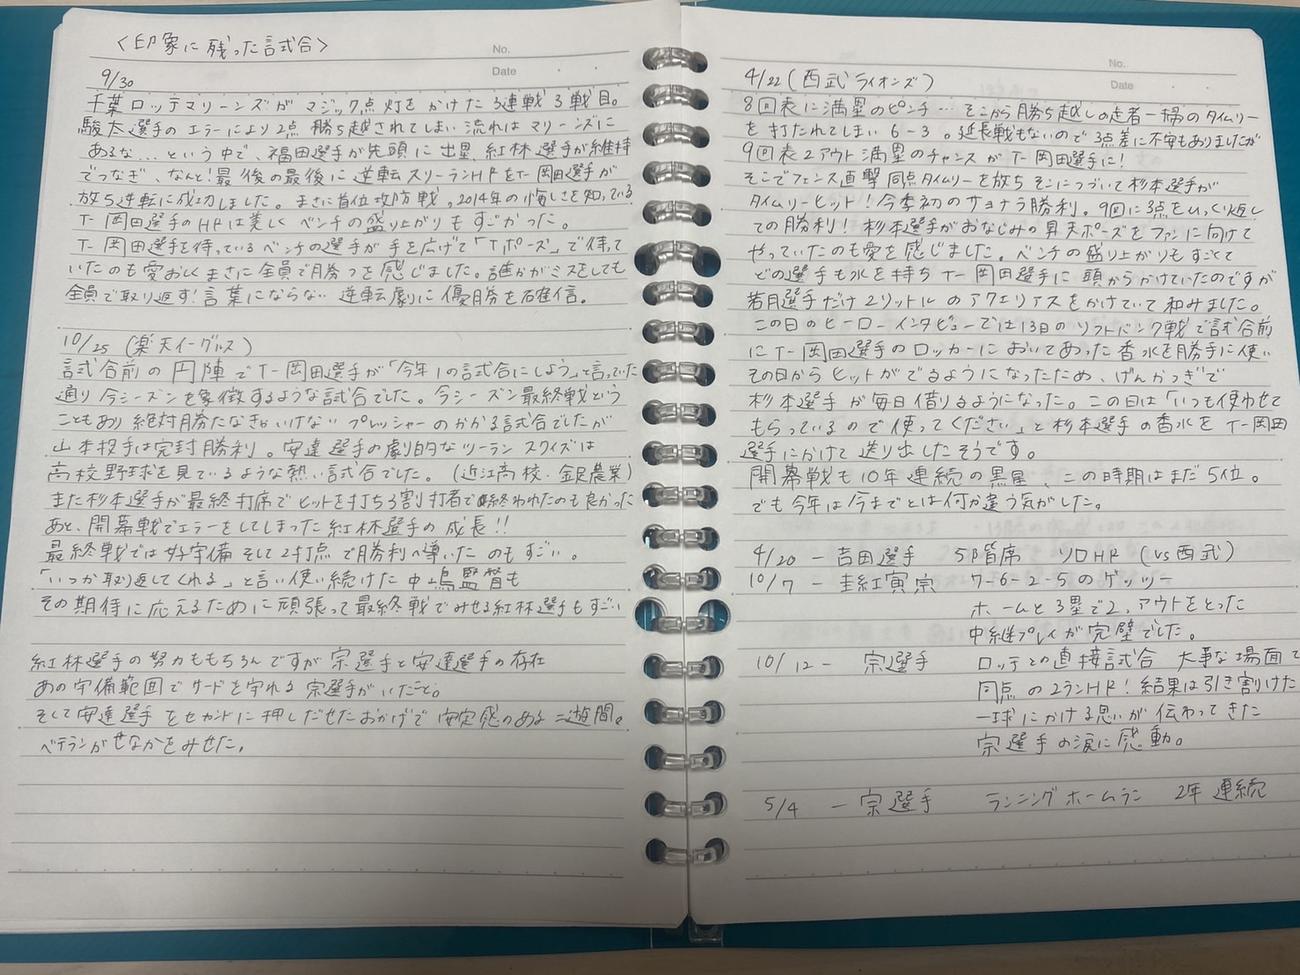 〈印象に残った試合〉
No.
Date
9/30
千葉ロッテマリーンズがマジック点灯をかけた3連戦3戦目。
駿太選手のエラーにより2点勝ち越されてしまい流れはマリーンズに
あるな…という中で、福田選手が先頭に出塁、紅林選手が維持
でつなぎ、なんと!最後の最後に逆転スリーランHRをT-岡田選手が
放ち逆転に成功しました。まさに首位攻防戦。2014年の悔しさを知っている
T-岡田選手のHRは美しくベンチの盛り上がりもすごかった。
T-岡田選手を待っているベンチの選手が手を広げて「Tポーズ」で待って
いたのも愛おしくまさに全員で勝つを感じました。誰かがミスをしても
全員で取り返す!言葉にならない逆転劇に優勝を確信。
10/25 (楽天イーグルス)
試合前の円陣でT-岡田選手が「今年1の試合にしよう」と言っていた
通り今シーズンを象徴するような試合でした。今シーズン最終戦という
こともあり絶対勝たなきゃいけないプレッシャーのかかる試合でしたが
山本投手は完封勝利。安達選手の劇的なツーランスクイズは
高校野球を見ているような熱い試合でした。(近江高校・金足農業)
また杉本選手が最終打席でヒットを打ち3割打者で終われたのも良かった
あと、開幕戦でエラーをしてしまった紅林選手の成長!!
最終戦では好守備そして2打点で勝利へ導いたのもすごい。
「いつか取り返してくれる」と言い使い続けた中嶋監督も
その期待に応えるために頑張って最終戦でみせる紅林選手もすごい
紅林選手の努力ももちろんですが宗選手と安達選手の存在
あの守備範囲でサードを守れる宗選手がいたこと。
そして安達選手をセカンドに押しだせたおかげで安定感のある二遊間。
ベテランがせなかをみせた。
No.
Date
4/22(西武ライオンズ)
8回表に満塁のピンチ…そこから勝ち越しの走者一掃のタイムリー
を打たれてしまい6-3。延長戦もないので3点差に不安もありましたが
9回表2アウト満塁のチャンスがT-岡田選手に!
そこでフェンス直撃同点タイムリーを放ちそこにつづいて杉本選手が
タイムリーヒット!今季初のサヨナラ勝利。9回に3点をひっくり返し
ての勝利!杉本選手がおなじみの昇天ポーズをファンに向けて
やっていたのも愛を感じました。ベンチの盛り上がりもすごくて
どの選手も水を持ちT-岡田選手に頭からかけていたのですが
若月選手だけ2リットルのアクエリアスをかけていて和みました。
この日のヒーローインタビューでは13日のソフトバンク戦で試合前
にT-岡田選手のロッカーにおいてあった香水を勝手に使い
その日からヒットがでるようになったため、げんかつぎで
杉本選手が毎日借りるようになった。この日は「いつも使わせて
もらっているので使ってください」と杉本選手の香水をT-岡田
選手にかけて送り出したそうです。
開幕戦も10年連続の黒星、この時期はまだ5位。
でも今年は今までとは何か違う気がした。
4/20 - 吉田選手 5階席 ソロHR (vs西武)
10/7 - 圭紅寅宗 7-6-2-5のゲッツー
ホームと3塁で2アウトをとった
中継プレイが完璧でした。
10/12 - 宗選手 ロッテとの直接試合 大事な場面で
同点の2ランHR!結果は引き割けた
一球にかける思いが伝わってきた
宗選手の涙に感動。
5/4 - 宗選手 ランニングホームラン 2年連続